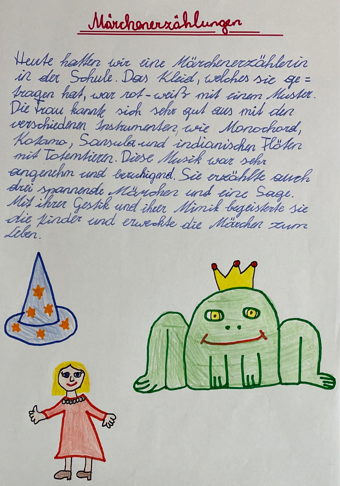 Märchenerzählungen
Heute hatten wir eine Märchenerzählerin
in der Schule. Das Kleid, welches sie ge=
tragen hat, war rot-weiß mit einem Muster.
Die Frau kannte sich sehr gut aus mit den
verschiedenen Instrumenten, wie Monochord,
Kotamo, Sansula und indianischen Flöten
mit Totemtieren. Diese Musik war sehr
angenehm und beruhigend. Sie erzählte auch
drei spannende Märchen und eine Sage.
Mit ihrer Gestik und ihrer Mimik begeisterte sie
die Kinder und erweckte die Märchen zum
Leben.